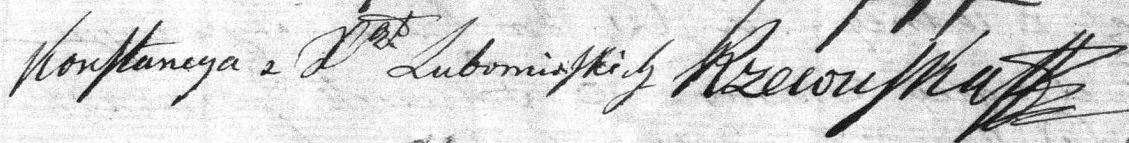 Konstancya z Xżąt Lubomirskich Rzewuska